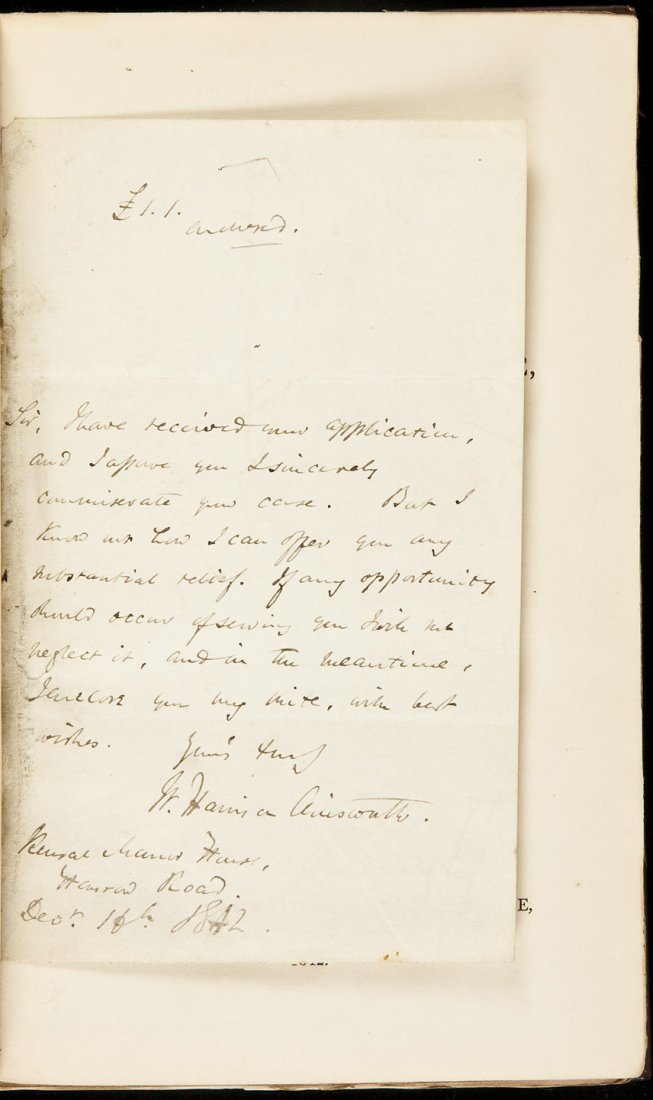 £1.1.
enclosed.
Sir, I have received your application,
and I assure you I sincerely
commiserate your case. But I
know not how I can offer you any
substantial relief. If any opportunity
should occur of serving you I will not
neglect it, and in the meantime,
I enclose you my mite, with best
wishes. Yours truly
W. Harrison Ainsworth.
Kensal Manor House,
Harrow Road.
Decr. 16th 1842.
E,